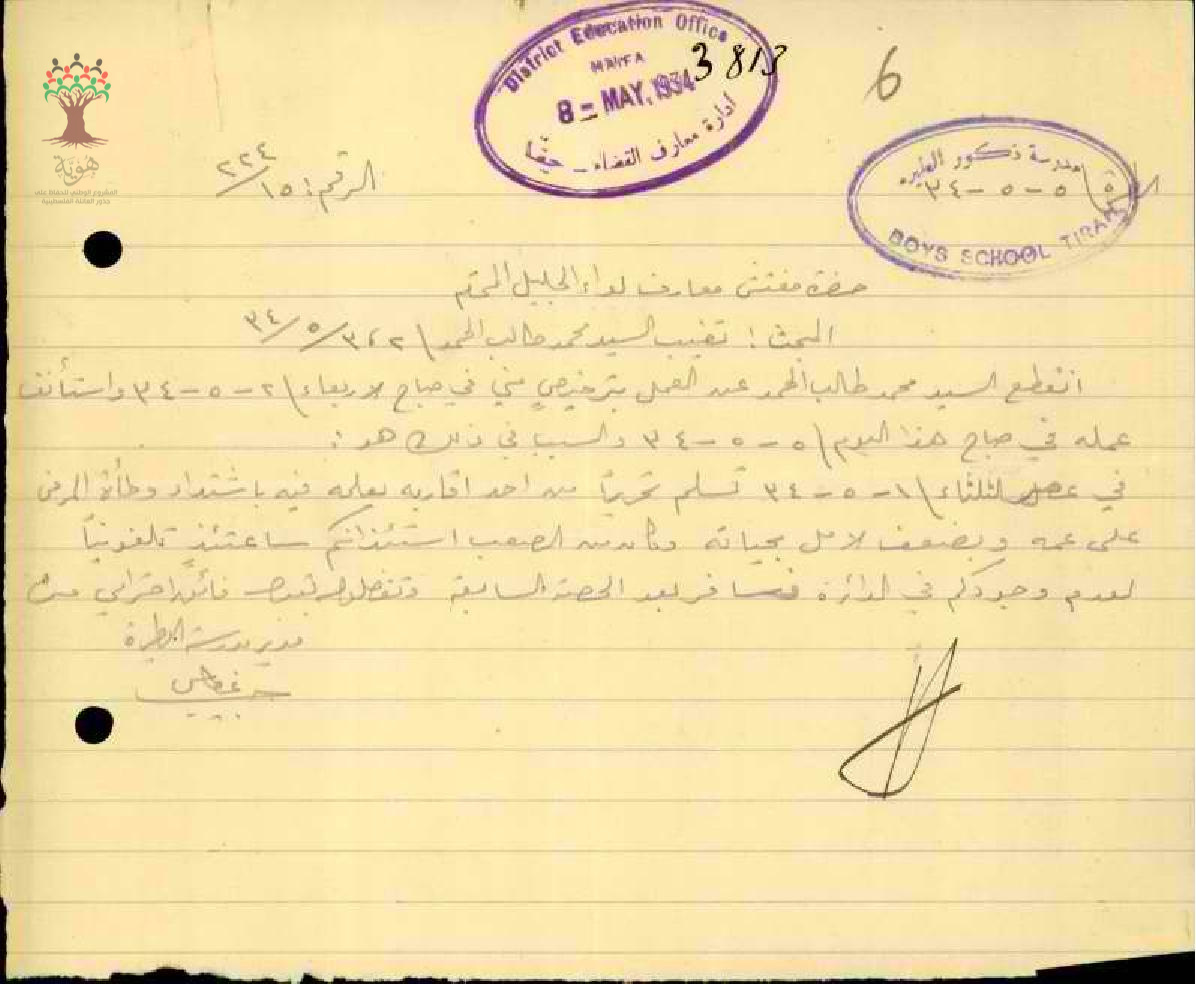 District Education Office
HAIFA
3813
8 - MAY. 1934
ادارة معارف القضاء - حيفا
6
مدرسة ذكور الطيره
٥ - ٥ - ٣٤
BOYS SCHOOL TIRAH
هوية
المشروع الوطني للحفاظ على
جذور العائلة الفلسطينية
الرقم: ١٥/٢٢٤
حضرة مفتش معارف لواء الجليل المحترم
البحث: تغيب السيد محمد طالب المحمد \ ٢، ٣/٥/٣٤
انقطع السيد محمد طالب المحمد عن العمل بترخيص مني في صباح الاربعاء \ ٢ - ٥ - ٣٤ واستأنف
عمله في صباح هذا اليوم \ ٥ - ٥ - ٣٤ والسبب في ذلك هو:
في عصر الثلثاء \ ١ - ٥ - ٣٤ تسلم تحريراً من احد اقاربه يعلمه فيه باشتداد وطأة المرض
على عمه وبضعف الامل بحياته وكان من الصعب استئذانكم ساعتئذ تلفونياً
لعدم وجودكم في الدائرة فسافر بعد الحصة السابعة وتفضلوا بقبول فائق احترامي
مدير مدرسة الطيرة